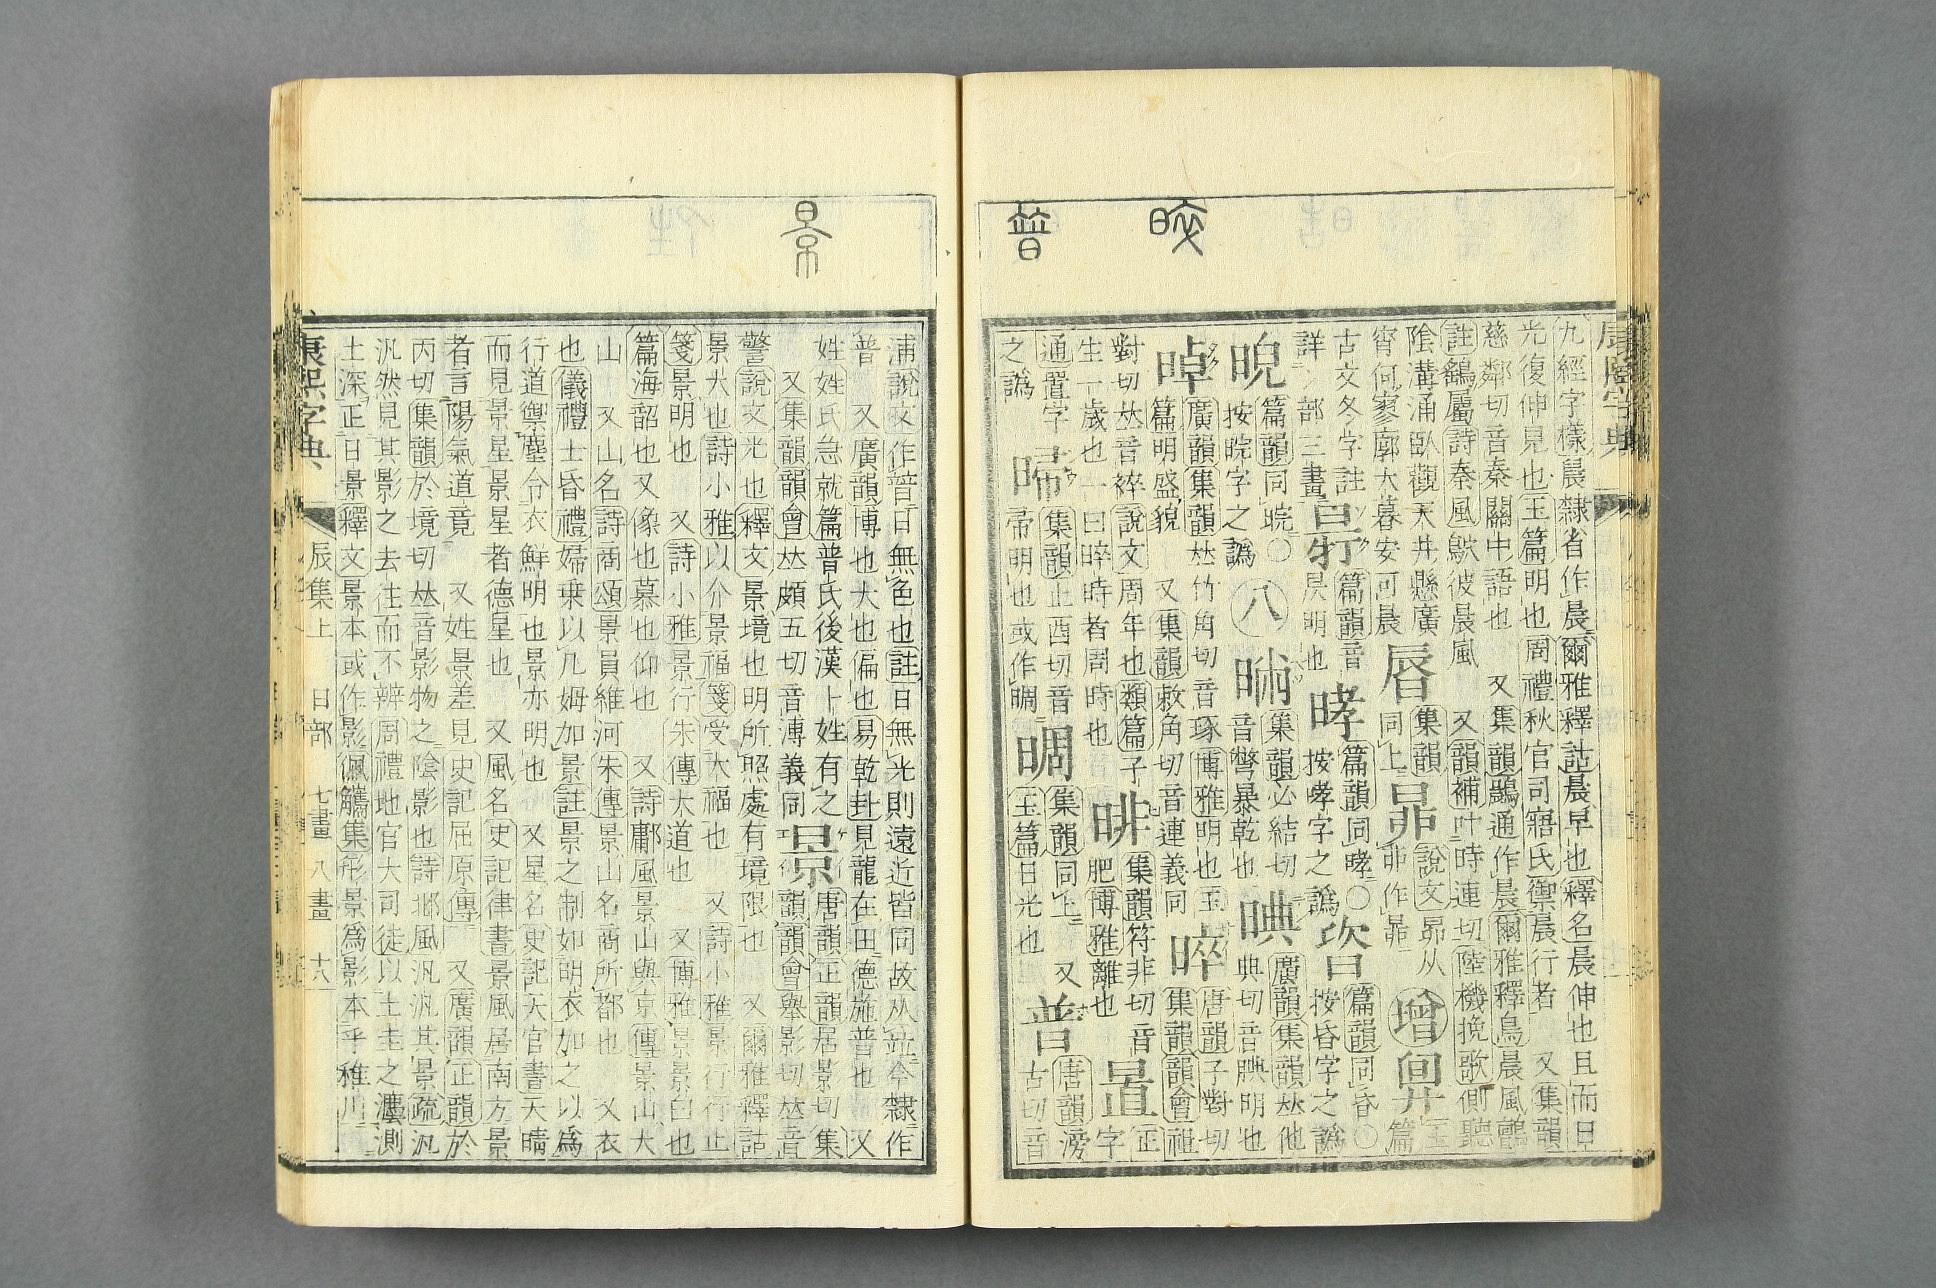 晈 普
九經字樣晨隸省作晨爾雅釋詁晨早也釋名晨伸也且而日
光復伸見也玉篇明也周禮秋官司寤氏禦晨行者 又集韻
慈鄰切音秦關中語也 又集韻鷐通作晨爾雅釋鳥晨風鸇
註鷂屬詩秦風鴥彼晨風 又韻補叶時連切陸機挽歌側聽
陰溝涌臥觀天井懸廣
宵何寥廓大暮安可晨 脣 集韻同上 昴 說文昴从 增
古文冬字註
詳 部三畫 篇韻音 昊明也 哮 篇韻同哮○按哮字之譌 篇韻同昏○按昏字之譌
晲 篇韻同晥○按晥字之譌 八 集韻必結切音彆暴乾也 晪 廣韻集韻𠀤他典切音腆明也
晫 廣韻集韻𠀤竹角切音琢博雅明也玉篇明盛貌 又集韻敕角切音連義同 晬 唐韻子對切集韻韻會祖
對切𠀤音綷說文周年也類篇子生一歲也一曰晬時者周時也 晘 集韻符非切音肥博雅離也 㫷 正字
通㫷字之譌 㫶 集韻止酉切音帚明也或作晭 晭 集韻同上 又玉篇日光也 普 唐韻滂古切音
景
浦說文作暜日無色也註日無光則遠近皆同故从竝今隸作
普 又廣韻博也大也偏也易乾卦見龍在田德施普也 又
姓姓氏急就篇普氏後漢十姓有之 景 唐韻正韻居影切集
又集韻韻會𠀤頗五切音溥義同 韻韻會舉影切𠀤音
警說文光也釋文景境也明所照處有境限也 又爾雅釋詁
景大也詩小雅以介景福箋受大福也 又詩小雅景行行止
箋景明也 又詩小雅景行朱傳大道也 又博雅景景白也
篇海韶也又像也慕也仰也 又詩鄘風景山與京傳景山大
山 又山名詩商頌景員維河朱傳景山名商所都也 又衣
也儀禮士昏禮婦乘以几姆加景註景之制如明衣加之以爲
行道禦塵令衣鮮明也景亦明也 又星名史記天官書天晴
而見景星景星者德星也 又風名史記律書景風居南方景
者言陽氣道竟 又姓景差見史記屈原傳 又廣韻正韻於
丙切集韻於境切𠀤音影物之陰影也詩邶風汎汎其景疏汎
汎然見其影之去往而不辨周禮地官大司徒以土圭之灋測
土深正日景釋文景本或作影佩觿集形景爲影本乎稚川
康熙字典 辰集上 日部 七畫 八畫 十八